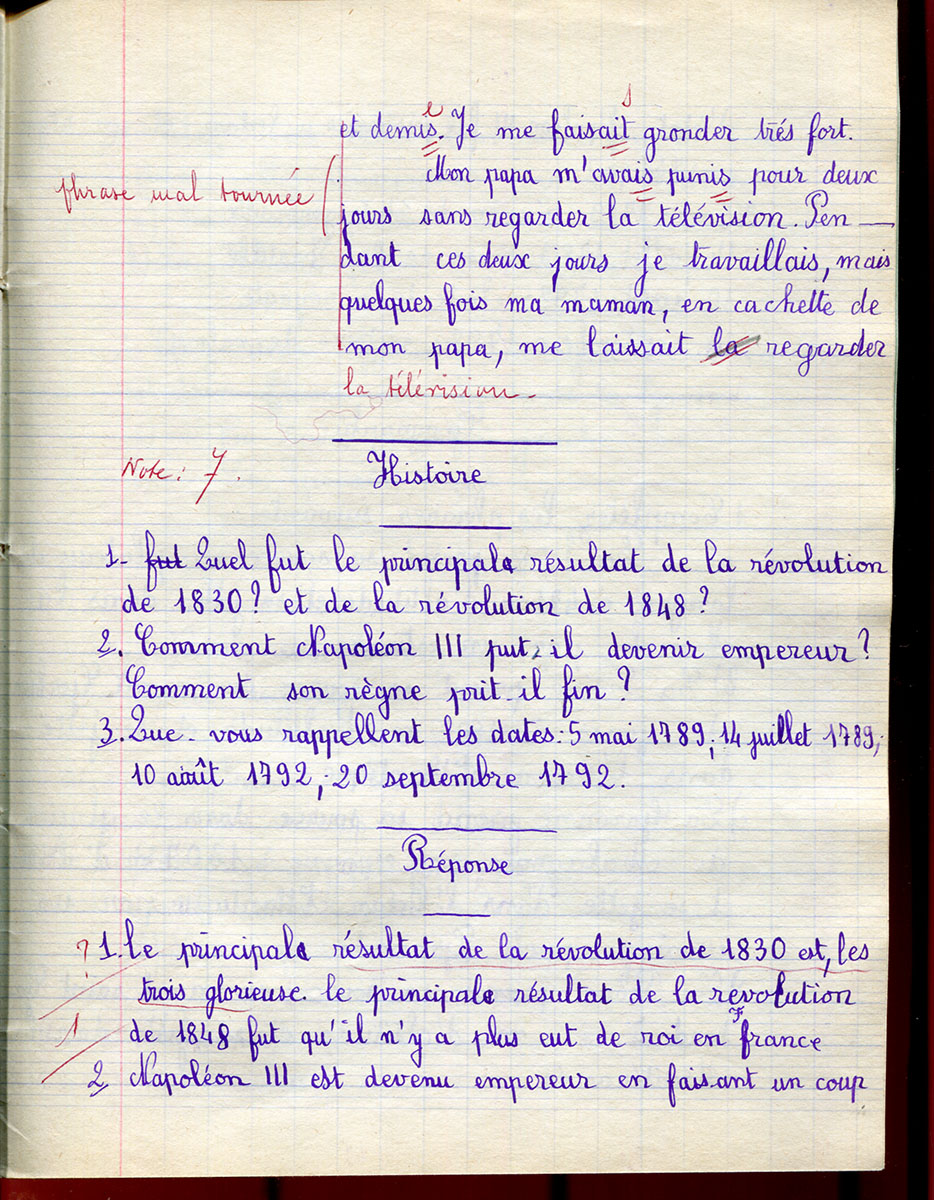 e s
et demis. Je me faisait gronder trés fort.
phrase mal tournée
Mon papa m'avais punis pour deux
jours sans regarder la télévision. Pen
dant ces deux jours je travaillais, mais
quelques fois ma maman, en cachette de
mon papa, me laissait la regarder
la télévision.
Note: 7.
Histoire
1- fut Quel fut le principale résultat de la révolution
de 1830? et de la révolution de 1848?
2. Comment Napoléon III put-il devenir empereur?
Comment son règne prit-il fin?
3. Que-vous rappellent les dates: 5 mai 1789; 14 juillet 1789;
10 août 1792; 20 septembre 1792.
Réponse
? 1. le principale résultat de la révolution de 1830 est, les
trois glorieuse. le principale résultat de la revolution
F
1 de 1848 fut qu'il n'y a plus eut de roi en france
2 Napoléon III est devenu empereur en faisant un coup